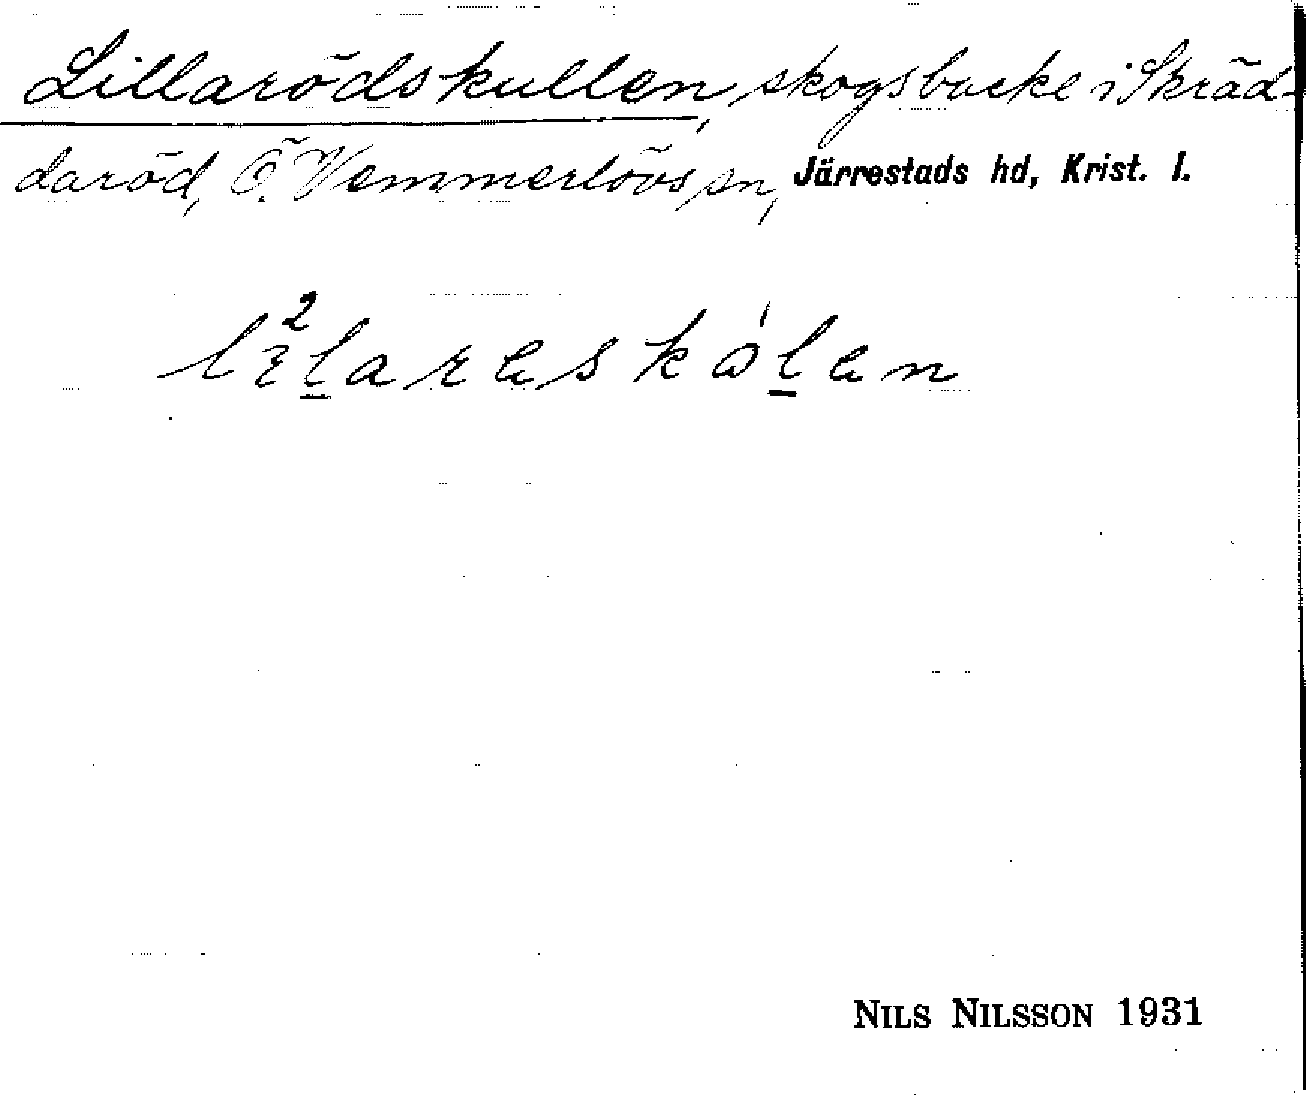 Lillarödskullen, skogsbacke i Skräd-
daröd, Ö. Vemmerlövs sn, Järrestads hd, Krist. l.
NILS NILSSON 1931